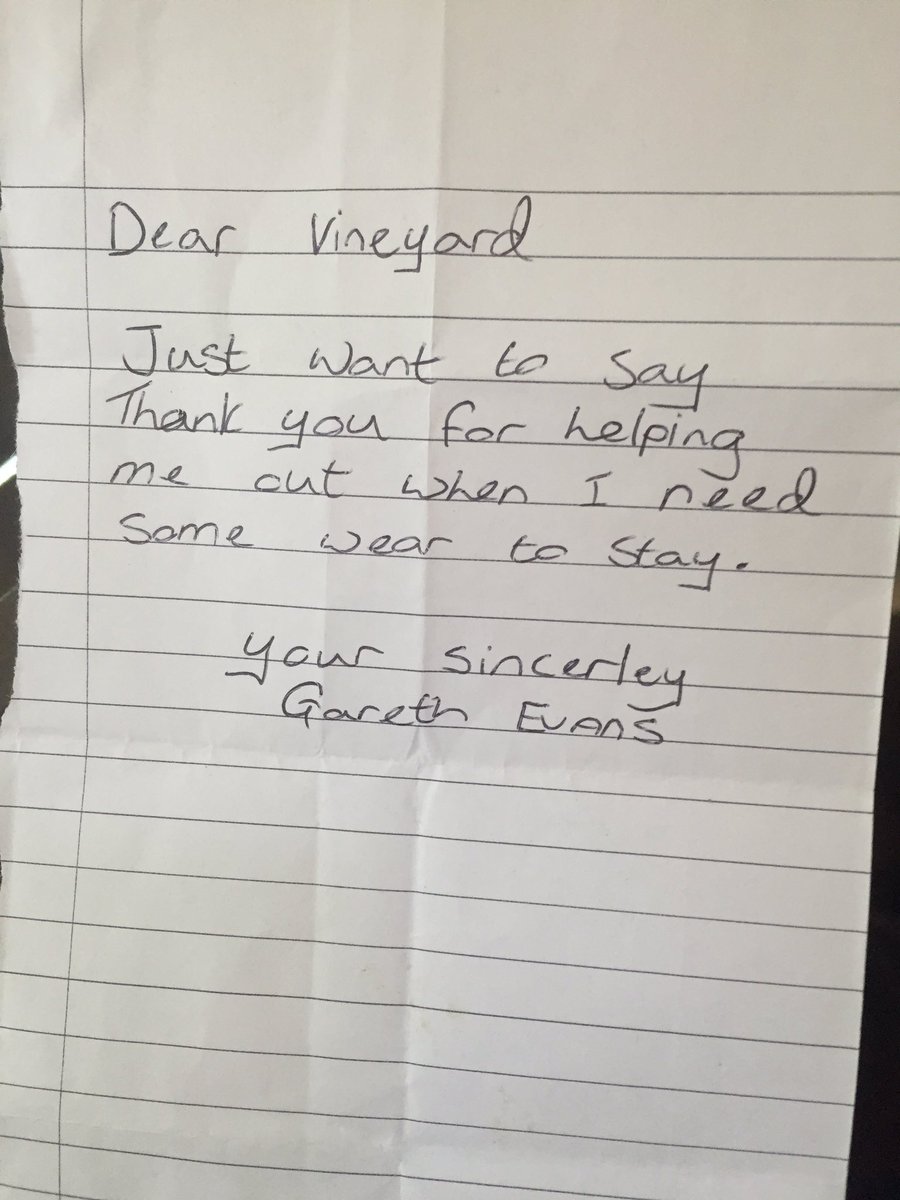 Dear Vineyard
Just want to say
Thank you for helping
me out when I need
some wear to stay.
your sincerley
Gareth Evans